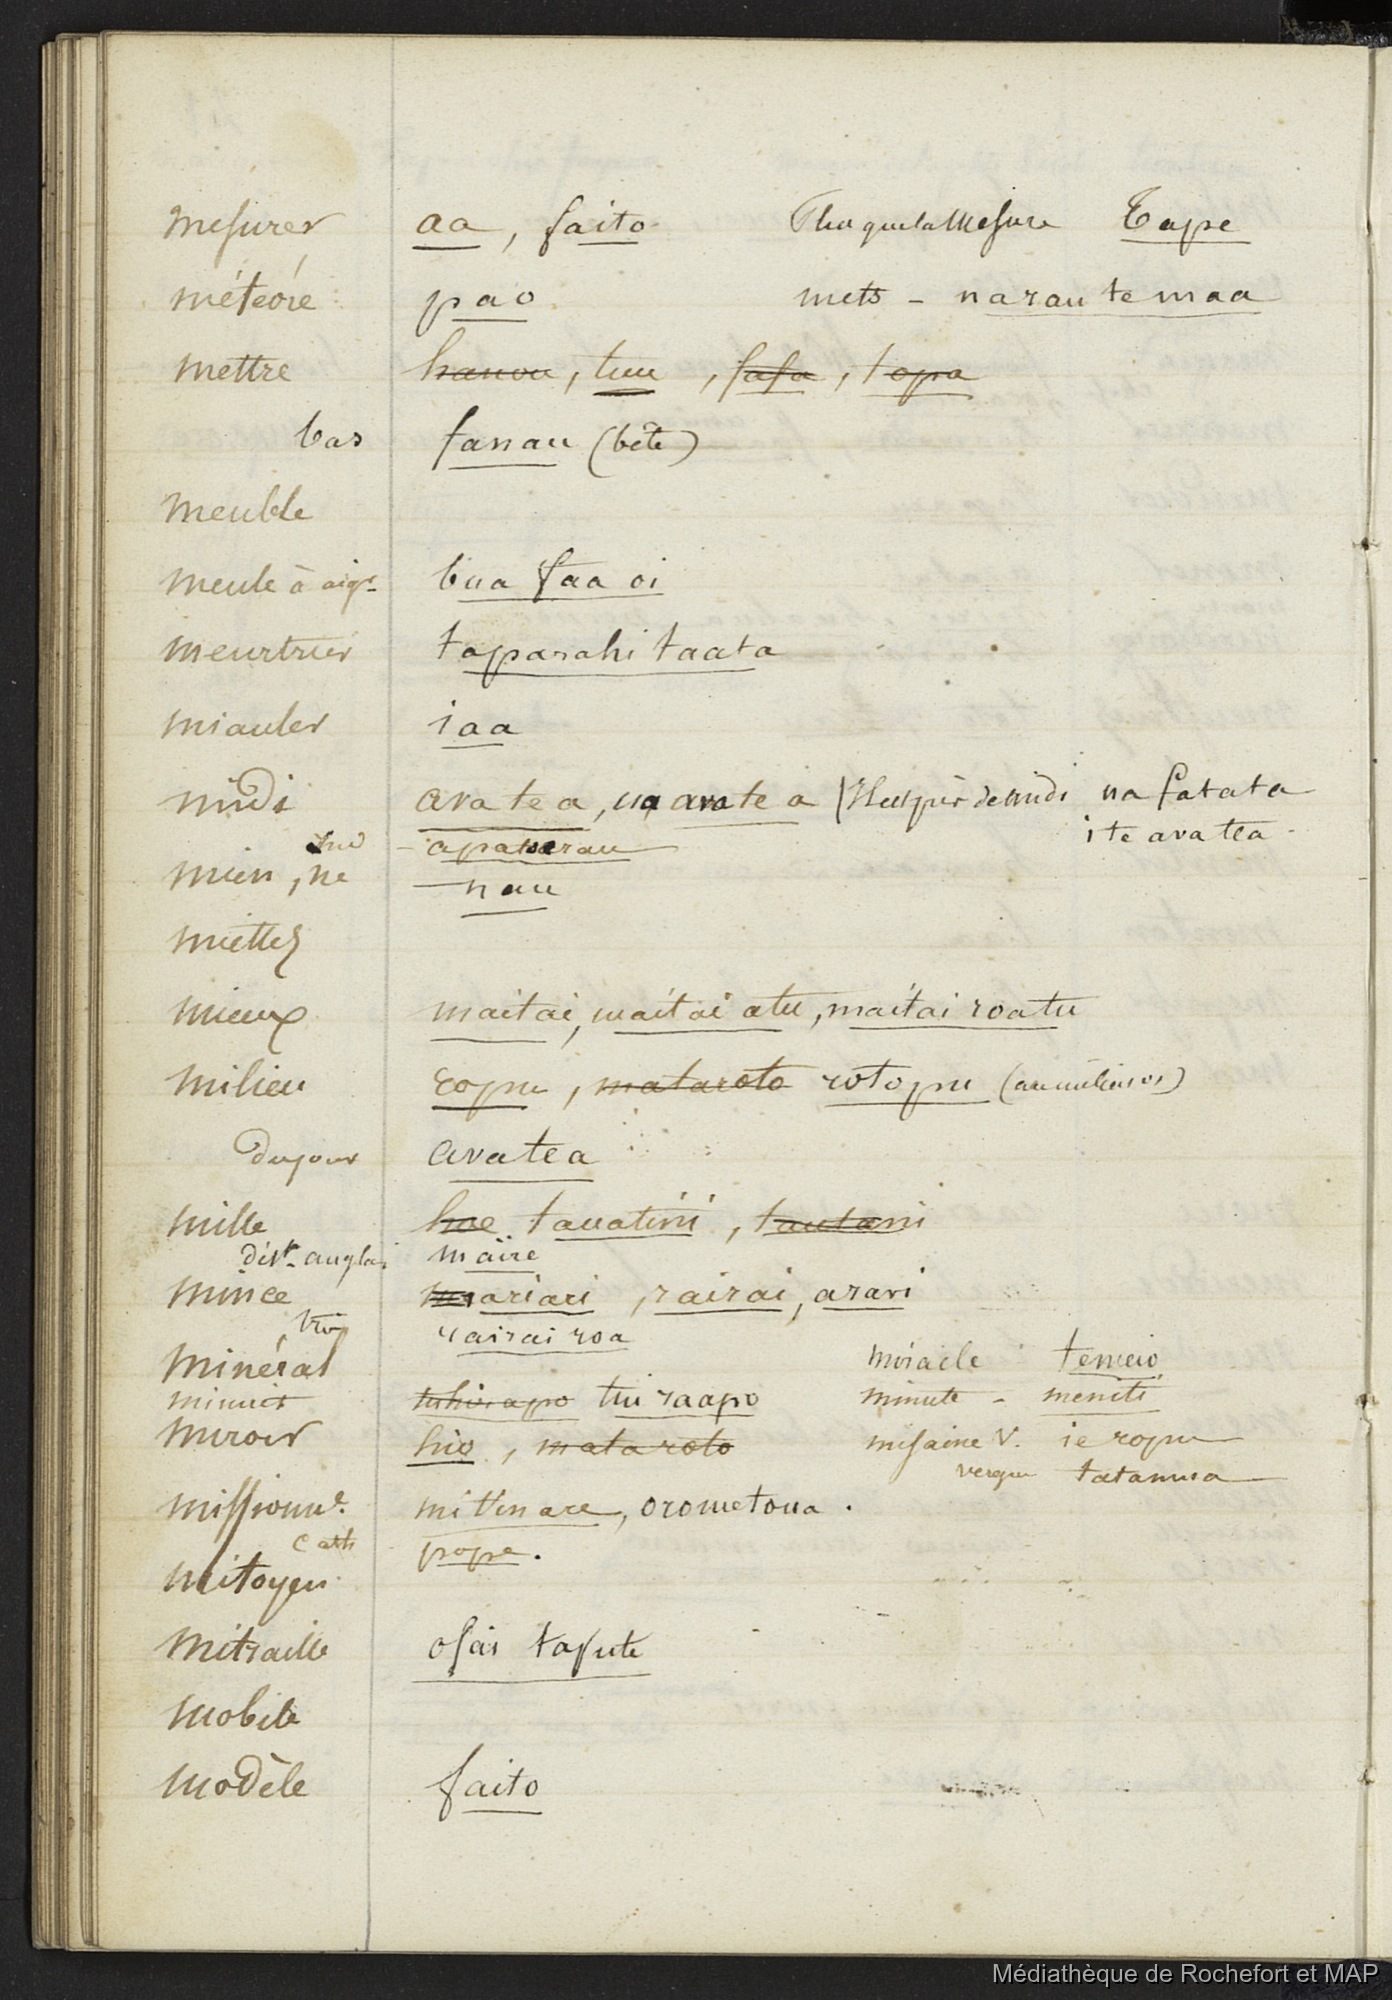 mesurer aa, faito Plus que la mesure Tape
météore pao mets - narau te maa
mettre hanou, tuu, fafa, topa
bas fanau (bête)
meuble
meule à aigr bua faa oi
meurtrier taparahi taata
miauler iaa
midi avatea, ua avatea il est près de midi na fatata
apatoerau i te avatea
mien, ne nau
miettes
mieux maitai, maitai atu, maitai roatu
milieu ropu, mataroto rotopu (au milieu os)
du jour avatea
mille hoe tauatini, tautani
dist. anglai maire
mince mariari, rairai, aravi
rairai roa
minéral miracle temeio
minuit tuhirapo tui raapo minute - meniti
miroir hio, mataroto misaine V. ie ropu
vergue tatamua
missionn.e mitinare, orometoua.
cath pope.
mitoyen
mitraille ofai tapute
mobile
modèle faito
Médiathèque de Rochefort et MAP